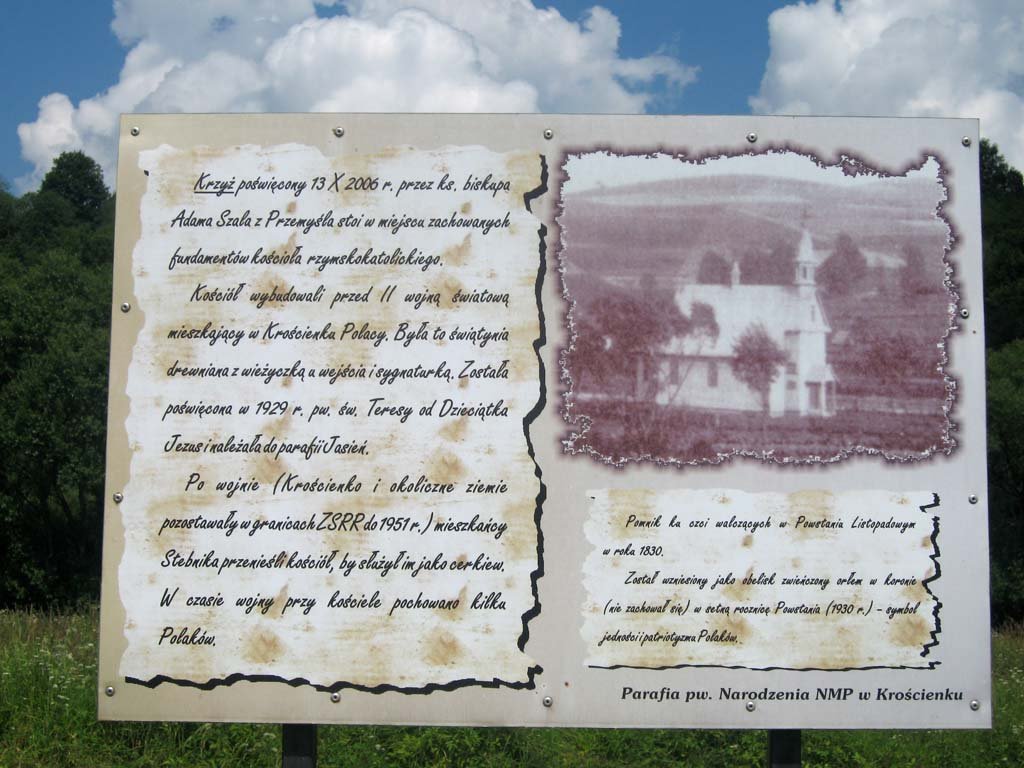 Krzyż poświęcony 13 X 2006 r. przez ks. biskupa
Adama Szala z Przemyśla stoi w miejscu zachowanych
fundamentów kościoła rzymskokatolickiego.
Kościół wybudowali przed II wojną światową
mieszkający w Krościenku Polacy. Była to świątynia
drewniana z wieżyczką u wejścia i sygnaturką. Została
poświęcona w 1929 r. pw. św. Teresy od Dzieciątka
Jezus i należała do parafii Jasień.
Po wojnie (Krościenko i okoliczne ziemie
pozostawały w granicach ZSRR do 1951 r.) mieszkańcy
Stebnika przenieśli kościół, by służył im jako cerkiew.
W czasie wojny przy kościele pochowano kilku
Polaków.
Pomnik ku czci walczących w Powstaniu Listopadowym
w roku 1830.
Został wzniesiony jako obelisk zwieńczony orłem w koronie
(nie zachował się) w setną rocznicę Powstania (1930 r.) – symbol
jedności i patriotyzmu Polaków.
Parafia pw. Narodzenia NMP w Krościenku